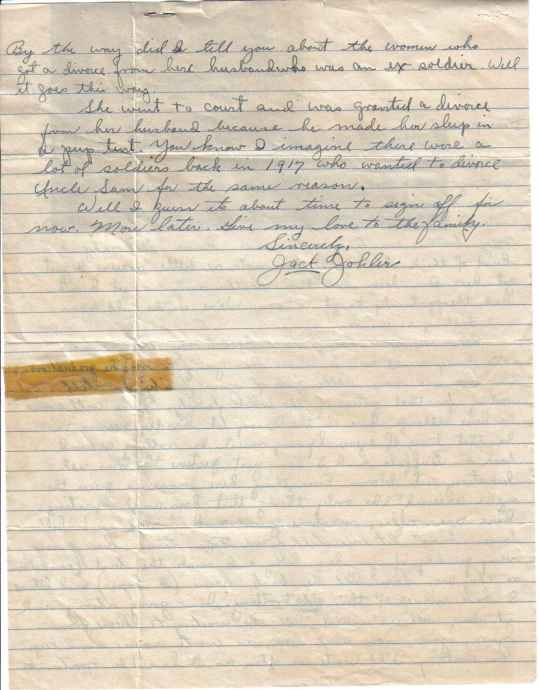 By the way did I tell you about the women who
got a divorce from here husband who was an ex soldier Well
it goes this way.
She went to court and was granted a divorce
from her husband because he made her sleep in
a pup tent. You know I imagine there were a
lot of soldiers back in 1917 who wanted to divorce
Uncle Sam for the same reason.
Well I guess its about time to sign off for
now. More later. Give my love to the family.
Sincerely,
Jack